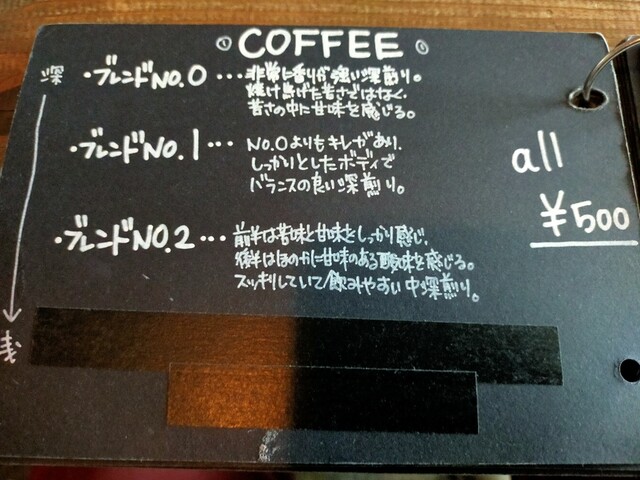 COFFEE
深
・ブレンドNO.0 … 非常に香りが強い深煎り。
焼け焦げた苦さではなく、
苦さの中に甘味を感じる。
・ブレンドNO.1 … NO.0よりもキレがあり、
しっかりとしたボディで
バランスの良い深煎り。
all
¥500
・ブレンドNO.2 … 前半は苦味と甘味をしっかり感じ、
後半はほのかに甘味のある酸味を感じる。
スッキリしていて飲みやすい中深煎り。
浅